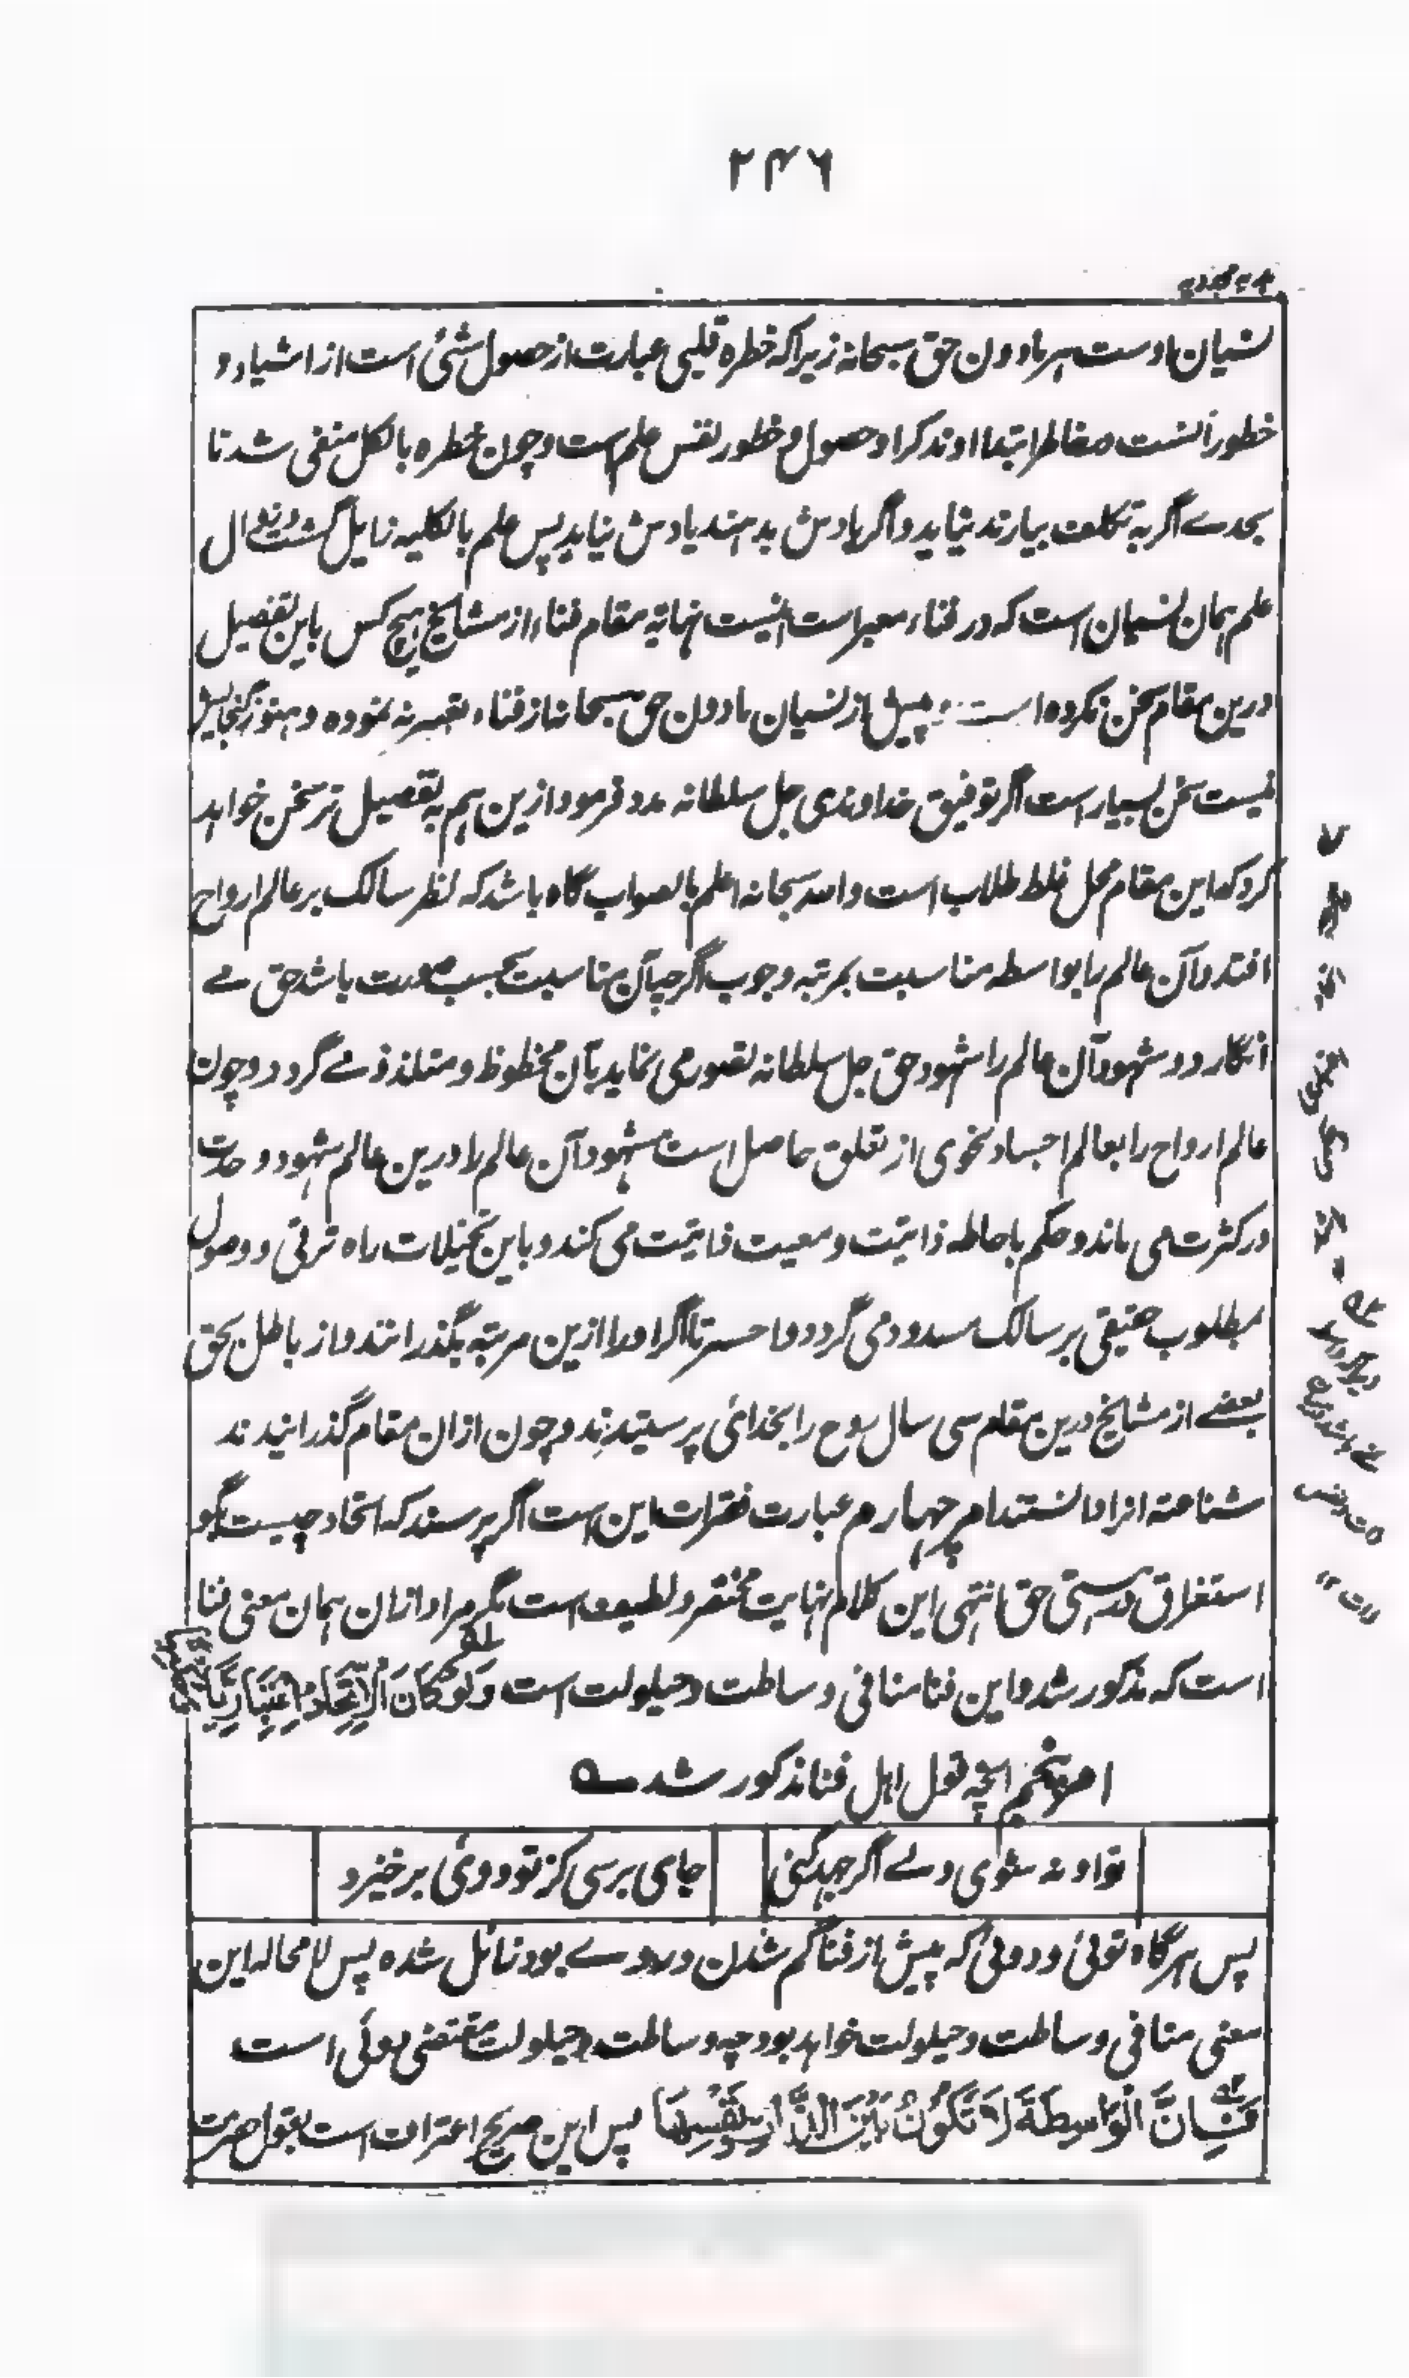 ۲۴۶
نسیان اوست مر مادون حق سبحانه زیراکه خطره قلبی عبارت از حصول شئ است از اشیاء و
خطور آنست مخاطر ابتدا او تذکرا و حصول و خطور نفس علم است و چون خطره بالکل منفی شد تا
بحدے اگر به تکلف بیارند نیاید و اگر یادش بدهند یادش نیاید پس علم بالکلیه زایل گشت و زوال
علم همان نسیان است که در فناء معبر است اینست نهایة مقام فناء از مشایخ هیچ کس باین تفصیل
درین مقام سخن نکرده است پیش از نسیان مادون حق سبحانه از فناء تعبیر نه نموده و هنوز گنجایش
نیست سخن بسیار است اگر توفیق خداوندی جل سلطانه مدد فرمود ازین هم به تفصیل تر سخن خواهد
کرد که این مقام محل غلط طلاب است و الله سبحانه اعلم بالصواب گاه باشد که نظر سالک بر عالم ارواح
افتد و آن عالم را بواسطه مناسبت بمرتبه وجوب اگرچه آن مناسبت بحسب صورت باشد حق مے
انگارد و شهود آن عالم را شهود حق جل سلطانه تصور می نماید بآن محظوظ و متلذذ مے گردد و چون
عالم ارواح را بعالم اجساد نحوی از تعلق حاصل است شهود آن عالم را درین عالم شهود وحدت
در کثرت می ماند و حکم باحاطه ذاتیت و معیت ذاتیت می کند و باین تخیلات راه ترقی و وصول
بمطلوب حقیقی بر سالک مسدود می گردد وا حسرتا اگر او را ازین مرتبه بگذرانند و از باطل بحق
بعضے از مشایخ درین مقام سی سال روح را بخدائی پرستیدند و چون ازان مقام گذرانیدند
شناعته انرا دانستند امر چهارم عبارت فقرات این است اگر پرسند که اتحاد چیست بگو
استغراق در هستی حق انتهی این کلام نهایت مختصر و لطیف است مگر مراد ازان همان معنی فنا
است که مذکور شد و این فنا منافی وساطت و حیلولت است وَلَوْ كَانَ الْاِتِّحَادُ اِعْتِبَارِيًّا
امر پنجم آنچه قول اهل فنا مذکور شد
تو او نه شوی ولے اگر جهد کنی
جای برسی کز تو دوئی برخیزد
پس هرگاه توئی و دوئی که پیش از فنا گم شدن در وے بود زائل شده پس لا محاله این
معنی منافی وساطت و حیلولت خواهد بود چه وساطت و حیلولت مقتضی دوئی است
فَاِنَّ الْوَاسِطَةَ لَا تَكُوْنُ بَيْنَ الذَّاتِ وَنَفْسِهَا پس این صریح اعتراف است بقول حضرت